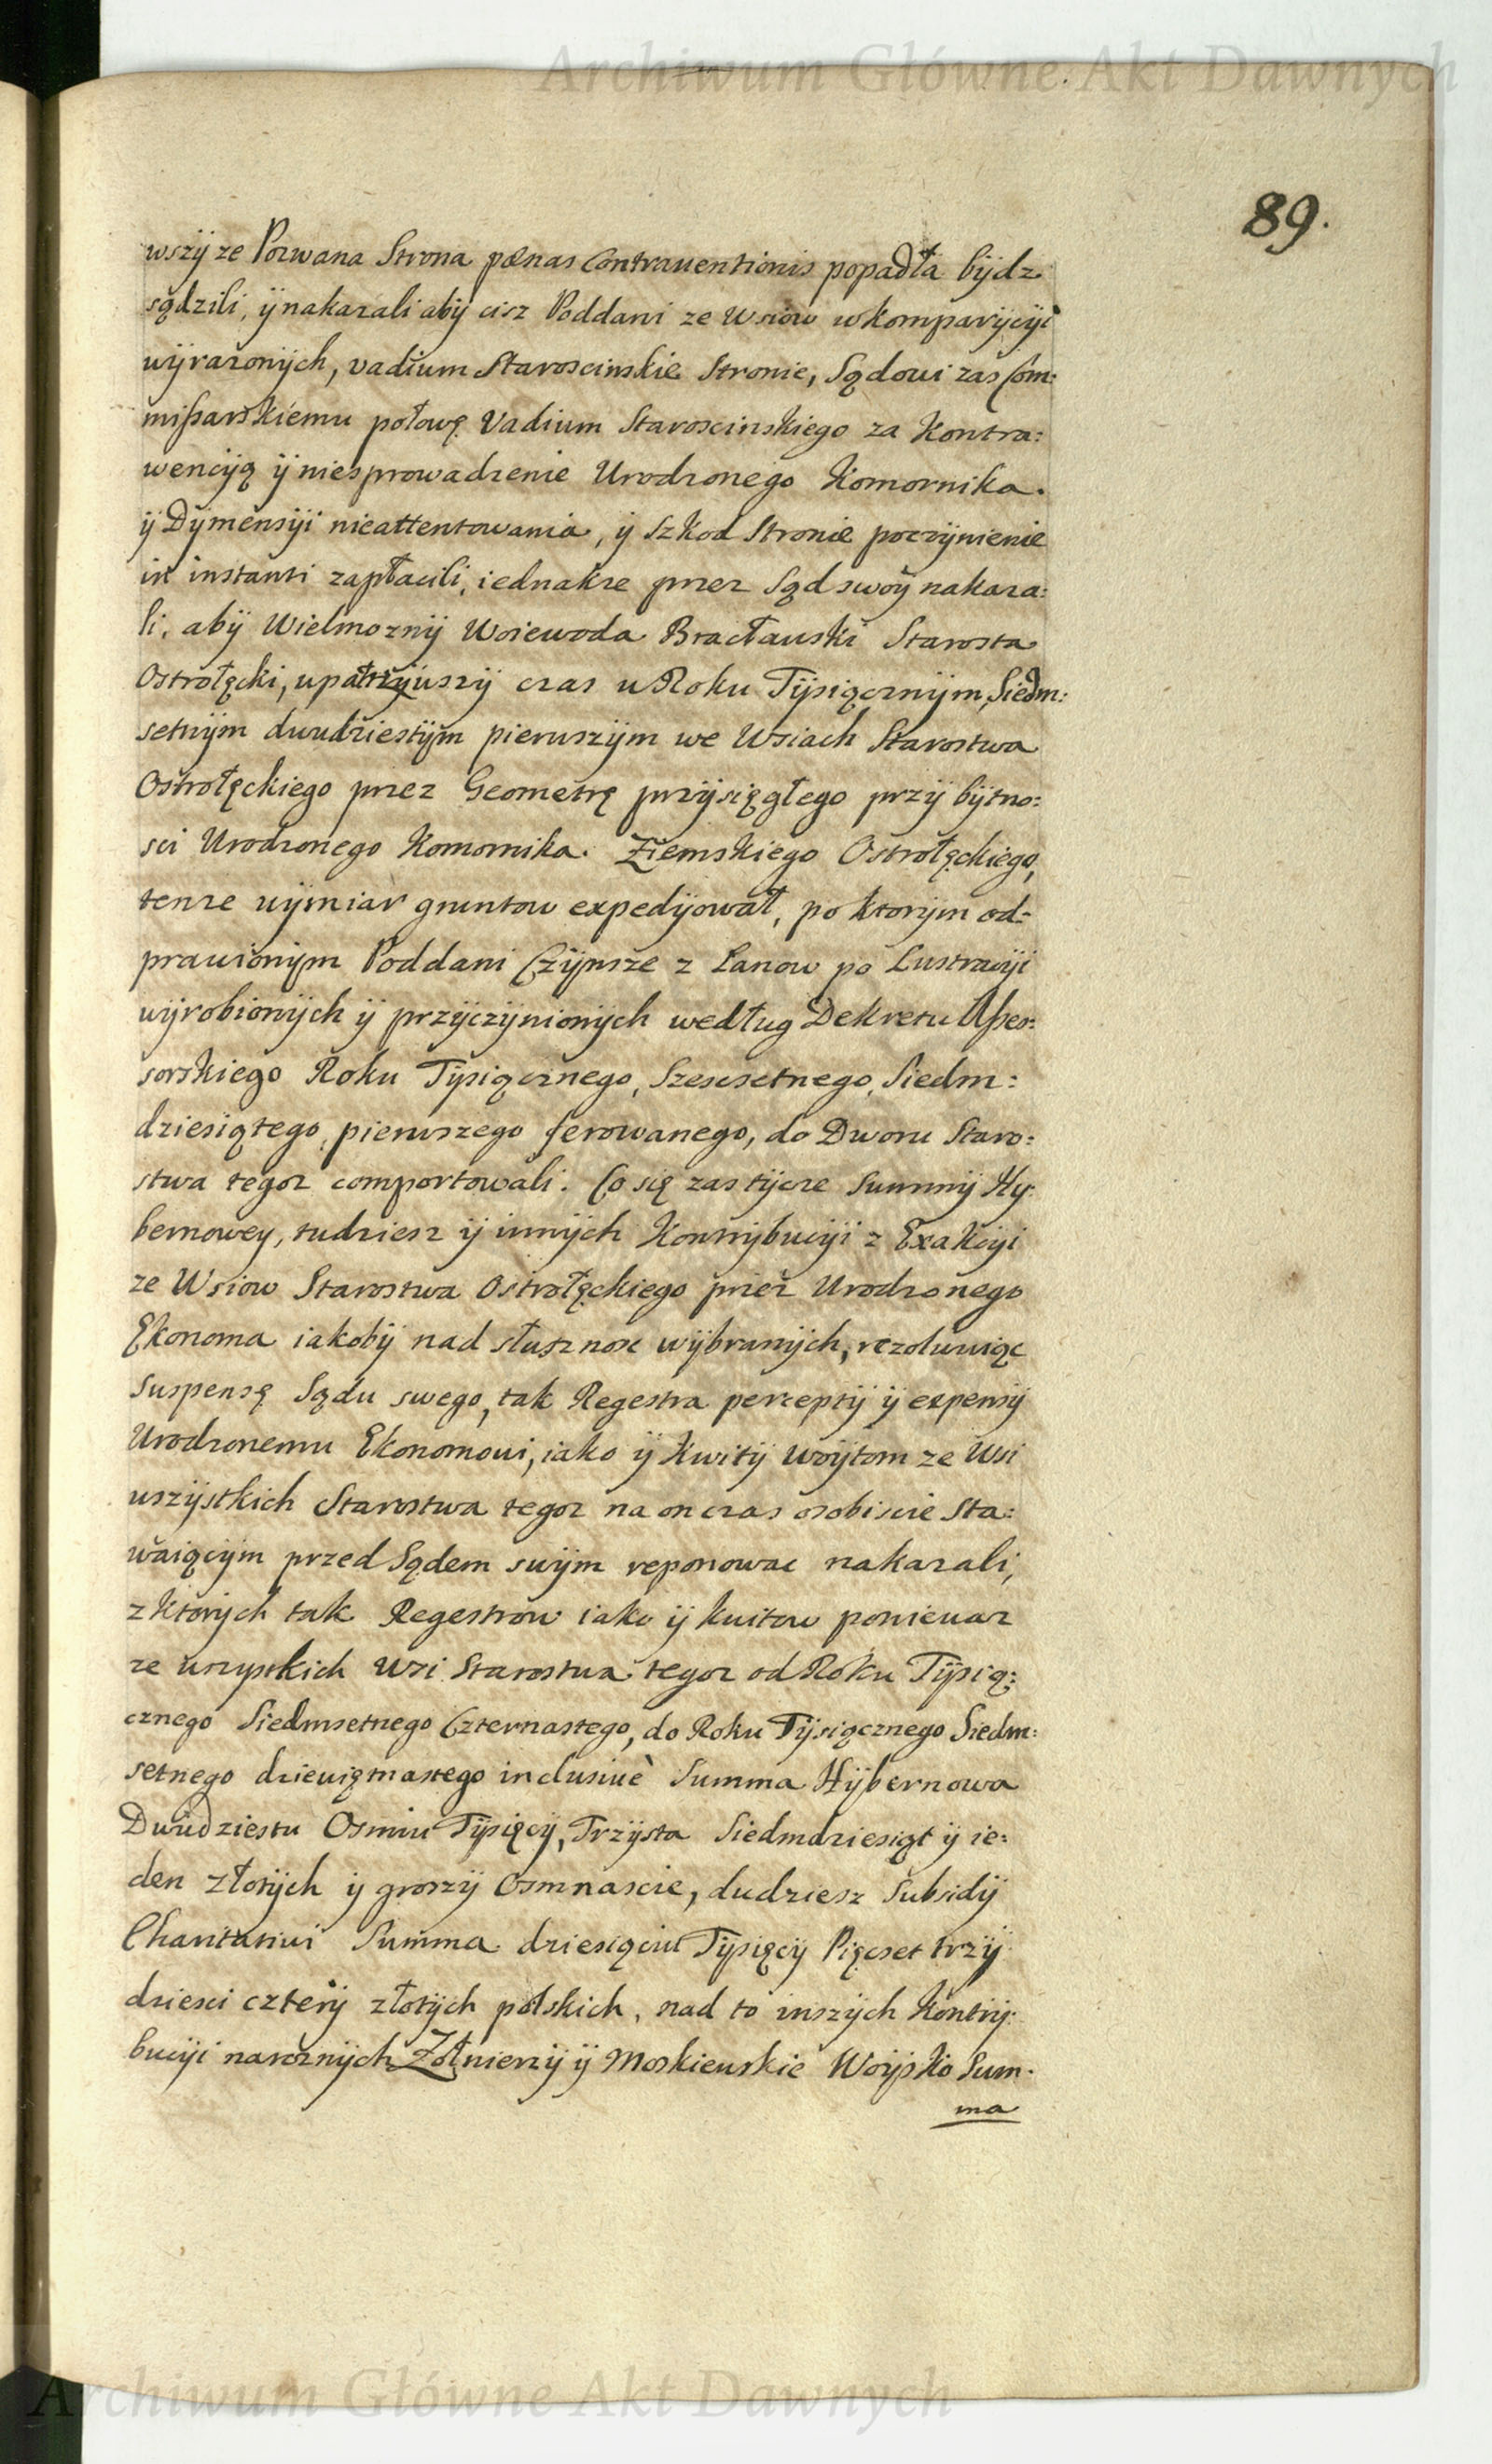 Archiwum Główne Akt Dawnych
89.
wszÿ ze Pozwana Strona pœnas Contrauentionis popadła bÿdz
sądzili, ÿ nakazali abÿ cisz Poddani ze Wsiow w komparÿcÿi
wÿrazonÿch, vadium Staroscinskie Stronie, Sądowi zas Com:
mißarskiemu połowę Vadium Staroscinskiego za Kontra:
wencÿą ÿ niesprowadzenie Urodzonego Komornika.
ÿ Dÿmensÿi nieattentowania, ÿ Szkod Stronie poczÿnienie
in instanti zapłacili, iednakze przez Sąd swoÿ nakaza:
li, abÿ Wielmoznÿ Woiewoda Bracławski Starosta
Ostrołęcki, upatrzÿwszÿ czas w Roku Tÿsiącznÿm, Siedm:
setnÿm dwudziestÿm pierwszÿm we Wsiach Starostwa
Ostrołęckiego przez Geometrę przÿsięgłego przÿ bÿtno:
sci Urodzonego Komornika Ziemskiego Ostrołęckiego,
tenze wÿmiar gruntow expedÿował, po ktorÿm od:
prawionÿm Poddani Czÿnsze z Łanow po Lustracÿi
wÿrobionÿch ÿ przÿczÿnionÿch według Dekretu Aßes:
sorskiego Roku Tÿsiącznego, Szescsetnego, Siedm:
dziesiątego, pierwszego ferowanego, do Dworu Staro:
stwa tegoz comportowali. Co się zas tÿcze Summÿ Hy:
bernowey, tudziesz ÿ innÿch Kontrÿbucÿi z Exakcÿi
ze Wsiow Starostwa Ostrołęckiego przez Urodzonego
Ekonoma iakobÿ nad słusznosc wÿbranÿch, rezolwuiąc
Suspensę Sądu swego, tak Regestra perceptÿ ÿ expensÿ
Urodzonemu Ekonomowi, iako ÿ Kwitÿ Woÿtom ze Wsi
wszÿstkich Starostwa tegoz na on czas osobiscie Sta:
waiącÿm przed Sądem swÿm reponowac nakazali,
z Ktorÿch tak Regestrow iako ÿ kwitow poniewaz
ze wszystkich Wsi Starostwa tegoz od Roku Tÿsią:
cznego Siedmsetnego Czternastego, do Roku Tÿsiącznego Siedm:
setnego dziewiętnastego inclusiuè Summa Hÿbernowa
Dwudziestu Osmiu Tÿsięcÿ, Trzÿsta Siedmdziesiąt ÿ ie:
den złotÿch ÿ groszÿ Osmnascie, dudziesz Subsidÿ
Charitatiui Summa dziesięciu Tÿsięcÿ Pięcset trzÿ
dziesci czterÿ złotÿch polskich, nad to inszÿch Kontrÿ:
bucÿi naroznÿch Żołnierzÿ ÿ Moskiewskie Woÿsko Sum:
ma
Archiwum Główne Akt Dawnych